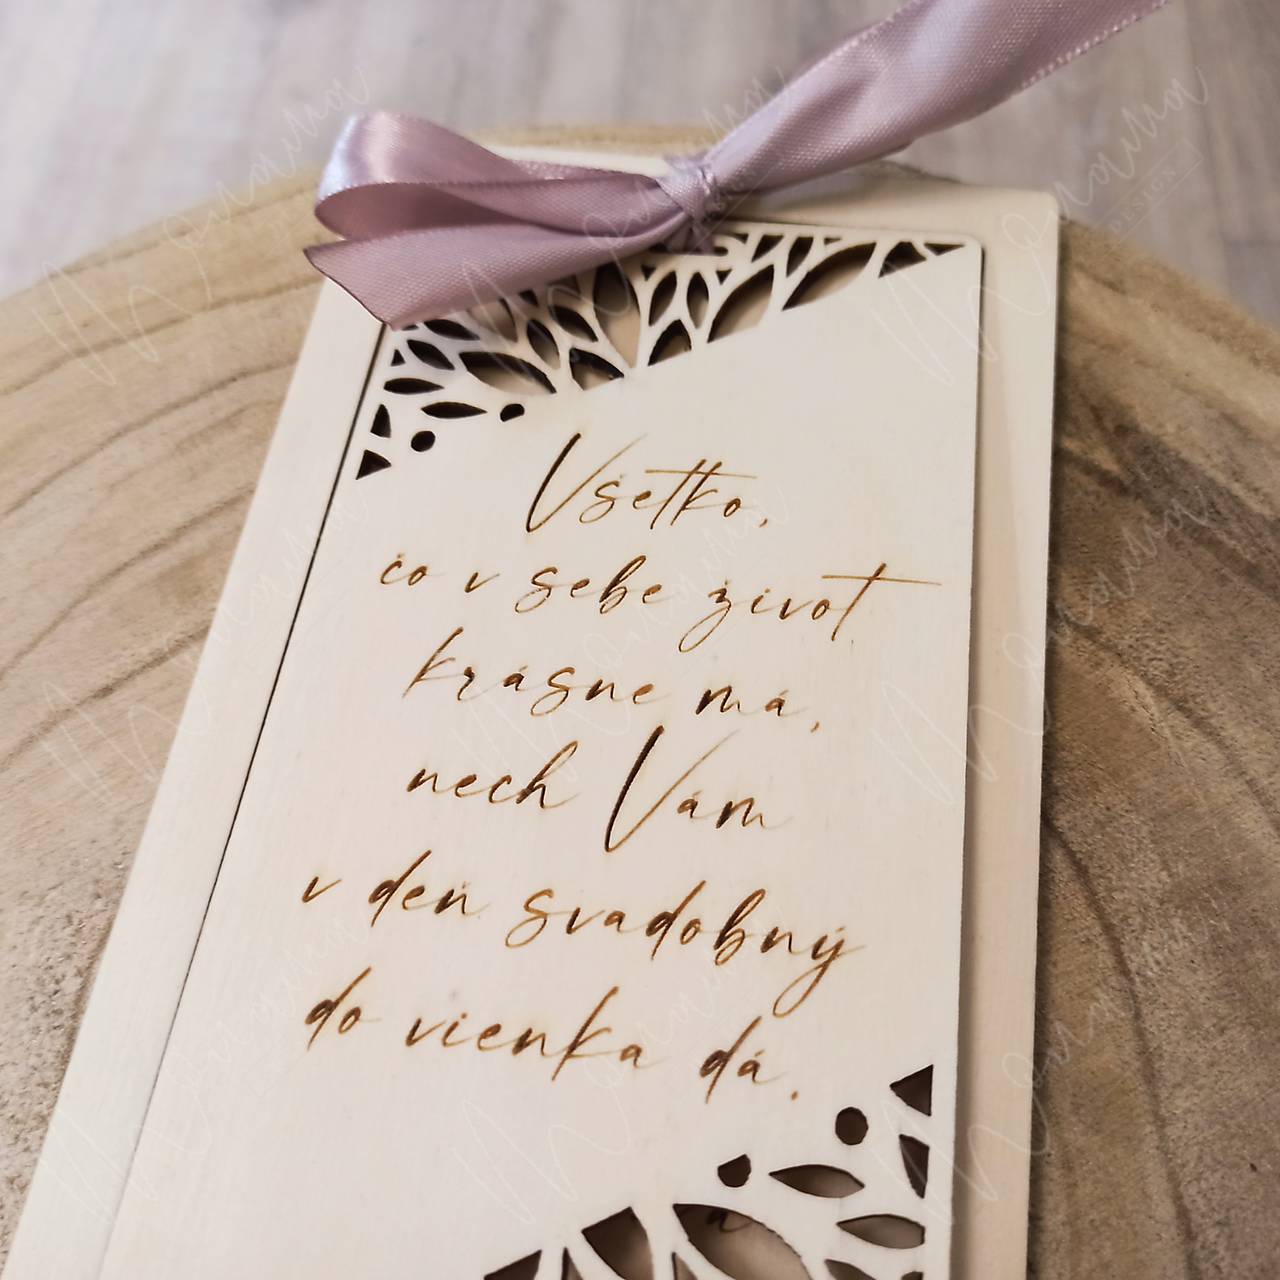 Všetko,
čo v sebe život
krásne má,
nech Vám
v deň svadobný
do vienka dá.